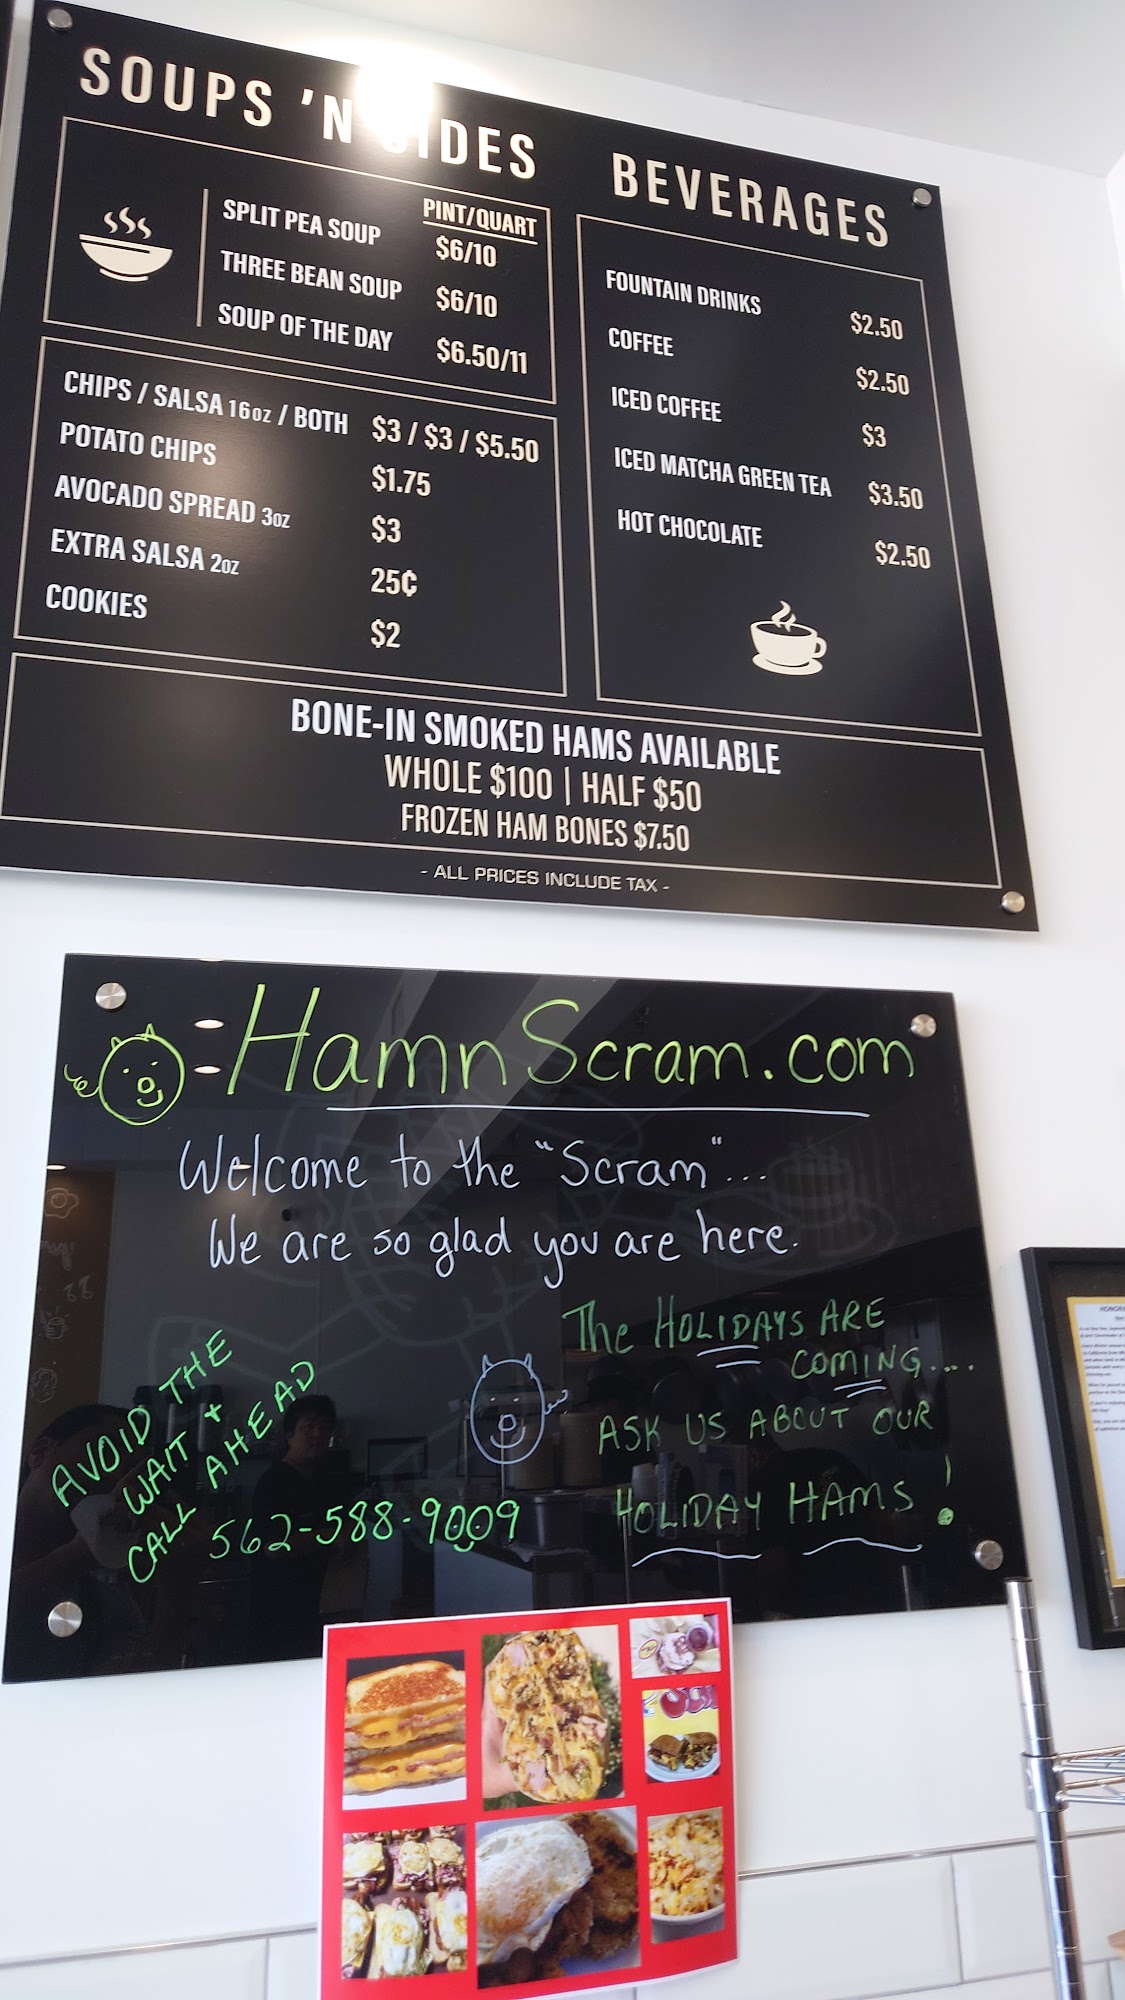 SOUPS 'N SIDES
PINT/QUART
SPLIT PEA SOUP $6/10
THREE BEAN SOUP $6/10
SOUP OF THE DAY $6.50/11
CHIPS / SALSA 16oz / BOTH $3 / $3 / $5.50
POTATO CHIPS $1.75
AVOCADO SPREAD 3oz $3
EXTRA SALSA 2oz 25¢
COOKIES $2
BEVERAGES
FOUNTAIN DRINKS $2.50
COFFEE $2.50
ICED COFFEE $3
ICED MATCHA GREEN TEA $3.50
HOT CHOCOLATE $2.50
BONE-IN SMOKED HAMS AVAILABLE
WHOLE $100 | HALF $50
FROZEN HAM BONES $7.50
- ALL PRICES INCLUDE TAX -
HamnScram.com
Welcome to the "Scram"...
We are so glad you are here.
AVOID THE
WAIT +
CALL AHEAD
562-588-9009
The HOLIDAYS ARE
COMING....
ASK US ABOUT OUR
HOLIDAY HAMS!